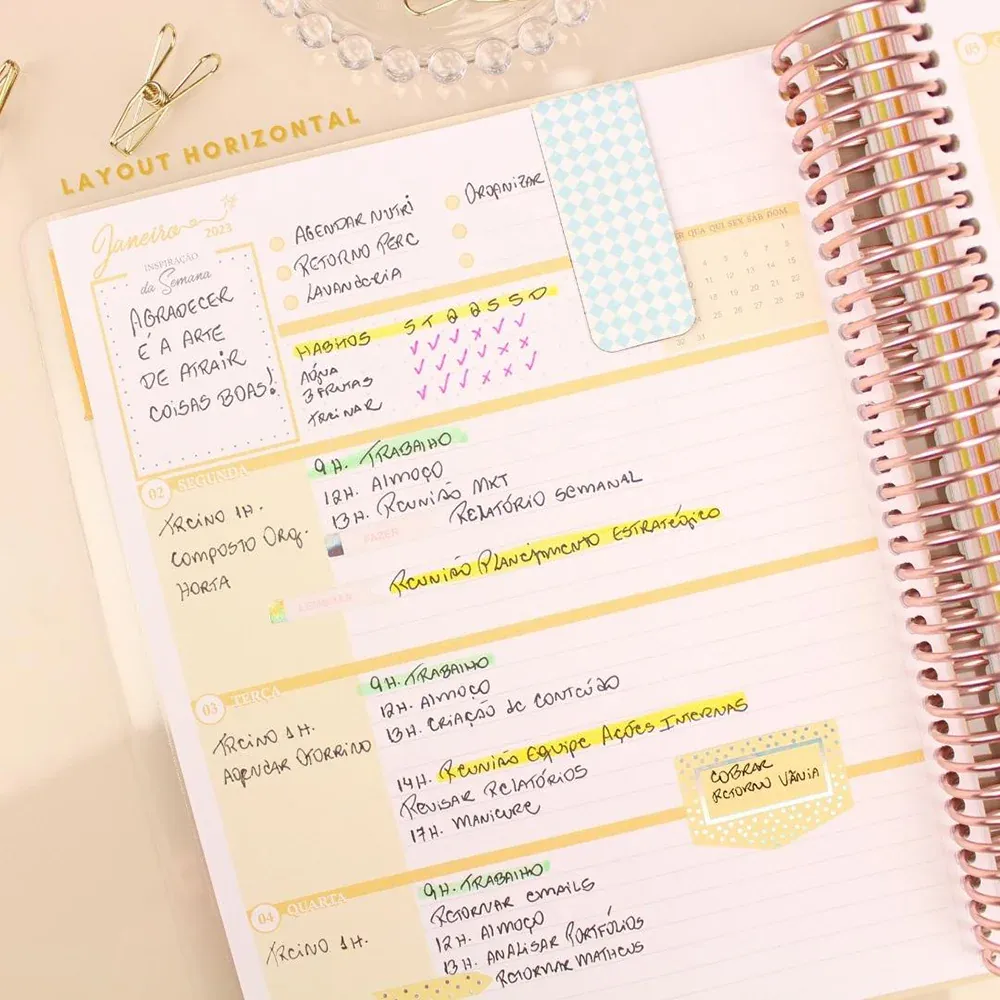 LAYOUT HORIZONTAL
Janeiro
2023
INSPIRAÇÃO
da Semana
AGRADECER
E A ARTE
DE ATRAIR
COISAS BOAS!
AGENDAR NUTRI
RETORNO PERC
LAVANDERIA
ORGANIZAR
HABITOS S T Q Q S S D
ÁGUA
3 FRUTAS
TREINAR
QUA QUI SEX SAB DOM
1
4 5 6 7 8
11 12 13 14 15
18 19 20 21 22
25 26 27 28 29
30 31
02 SEGUNDA
TREINO 1H.
COMPOSTO ORG.
HORTA
9H. TRABALHO
12H. ALMOÇO
13H. REUNIÃO MKT
RELATÓRIO SEMANAL
FAZER
REUNIÃO PLANEJAMENTO ESTRATÉGICO
LEMBRAR
03 TERÇA
TREINO 1H.
AGENDAR OTORRINO
9H. TRABALHO
12H. ALMOÇO
13H. CRIAÇÃO DE CONTEÚDO
14H. REUNIÃO EQUIPE AÇÕES INTERNAS
REVISAR RELATÓRIOS
17H. MANICURE
COBRAR
RETORNO VÂNIA
04 QUARTA
TREINO 1H.
9H. TRABALHO
RETORNAR EMAILS
12H. ALMOÇO
13H. ANALISAR PORTFÓLIOS
RETORNAR MATHEUS
03